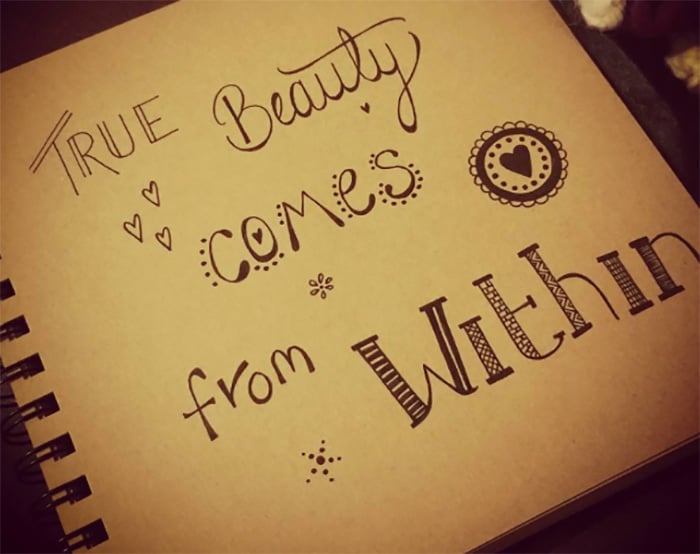 TRUE Beauty
comes
from Within